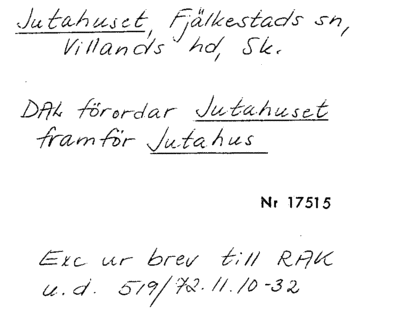 Jutahuset, Fjälkestads sn,
Villands hd, Sk.
DAL förordar Jutahuset
framför Jutahus
Nr 17515
Exc ur brev till RAK
u.d. 519/72.11.10-32